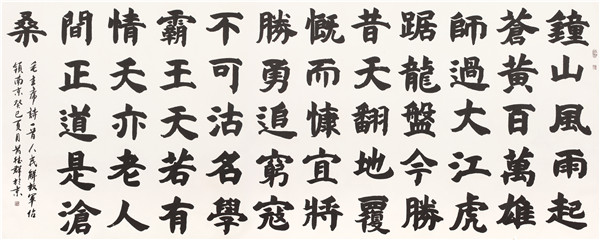 鐘山風雨起
蒼黃百萬雄
師過大江虎
踞龍盤今勝
昔天翻地覆
慨而慷宜將
勝勇追窮寇
不可沽名學
霸王天若有
情天亦老人
間正道是滄
桑
毛主席詩一首人民解放軍佔
領南京癸巳夏月於京